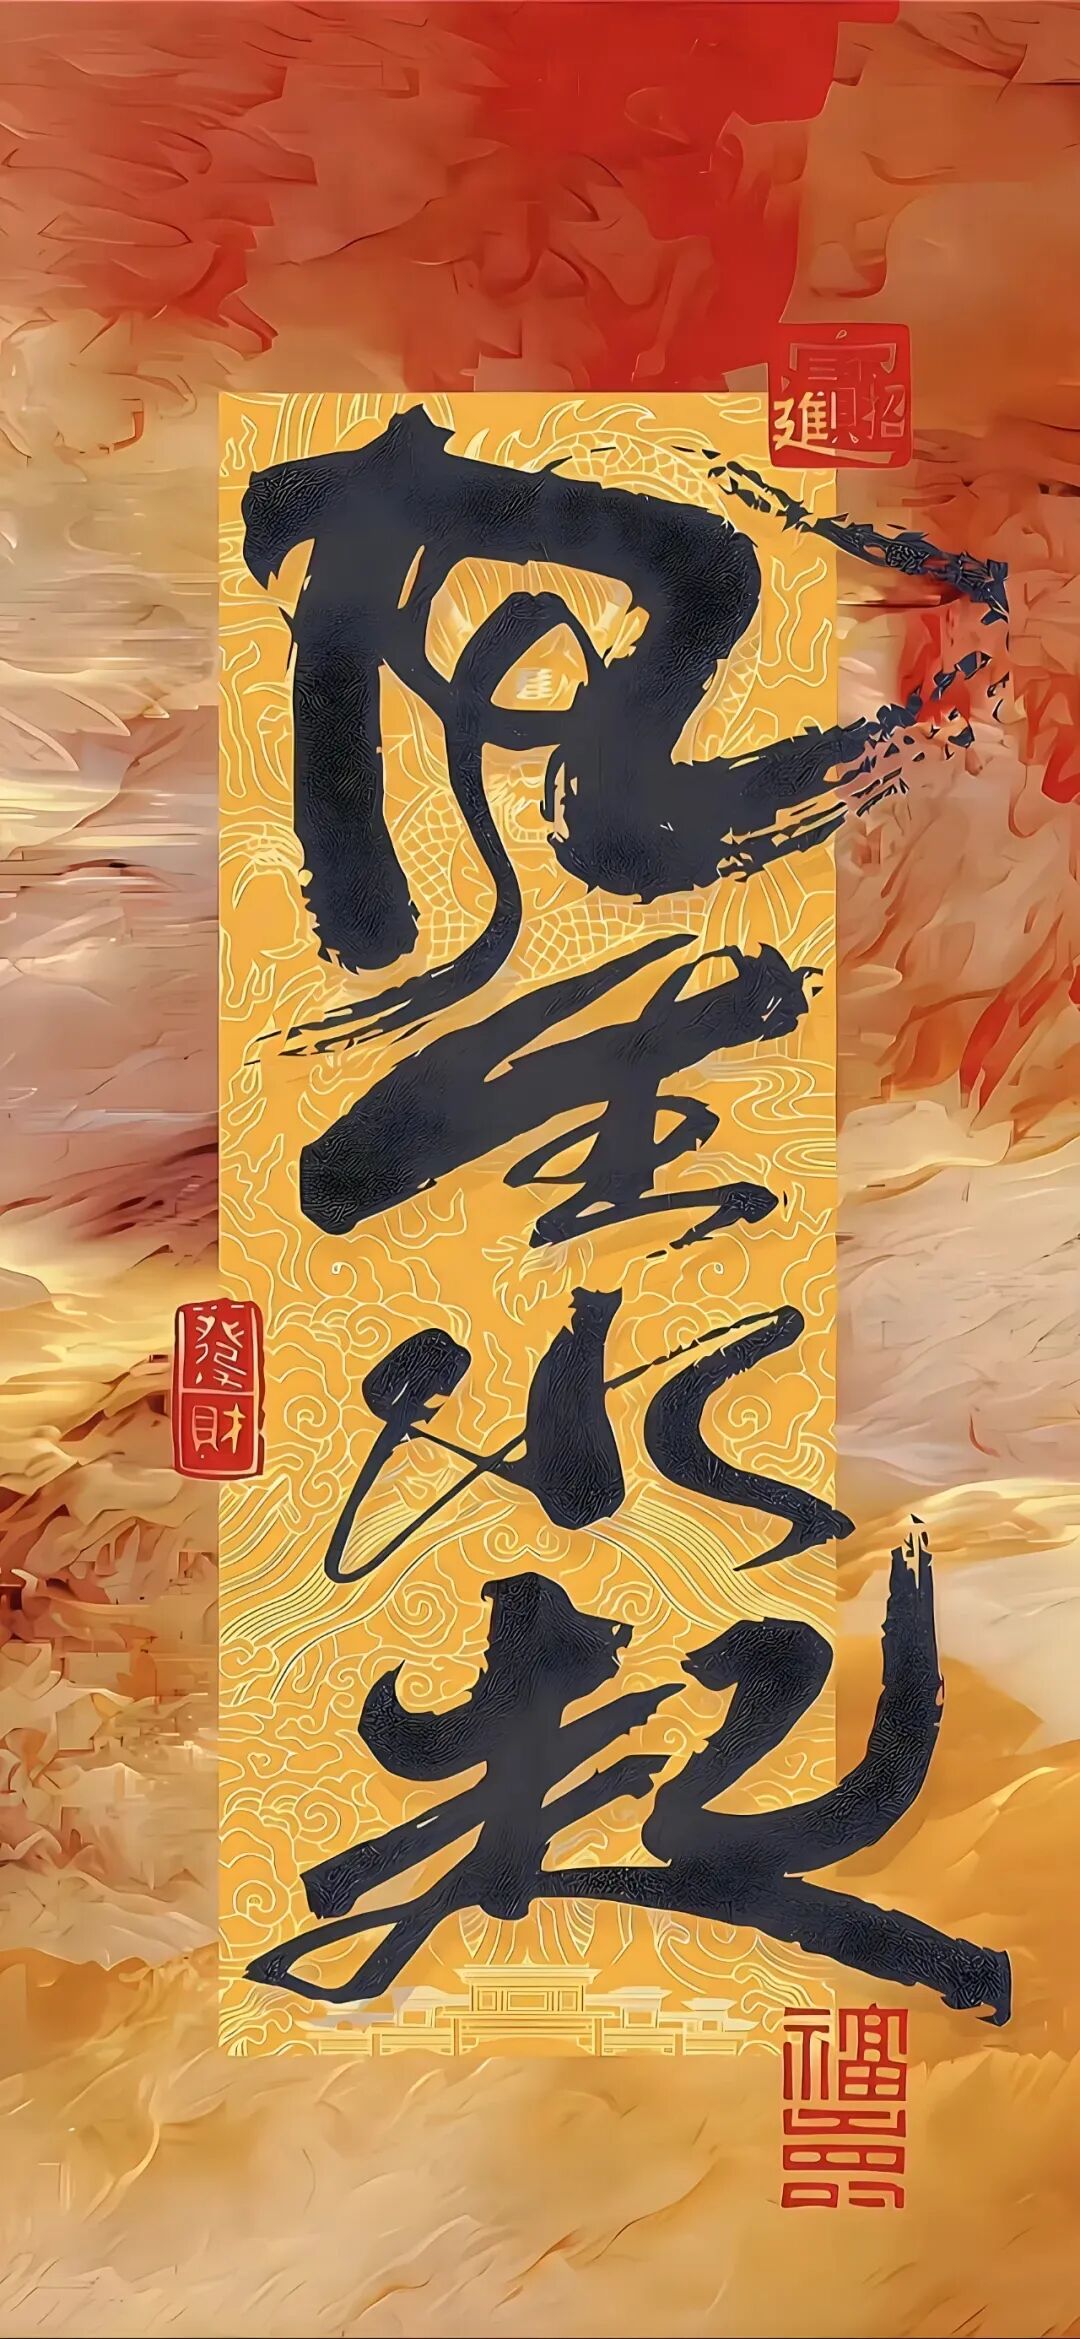 招財進寶
风生水起
發財
福壽